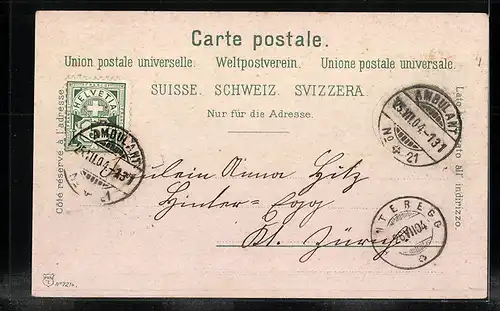 Carte postale.
Union postale universelle. Weltpostverein. Unione postale universale.
SUISSE. SCHWEIZ. SVIZZERA.
Nur für die Adresse.
Côté réservé à l'adresse.
Lato riservato all' indirizzo.
HELVETIA
AMBULANT
No 4 21
AMBULANT
No 4 21
Fräulein Anna Hitz
Hinter-Egg
Kt. Zürich